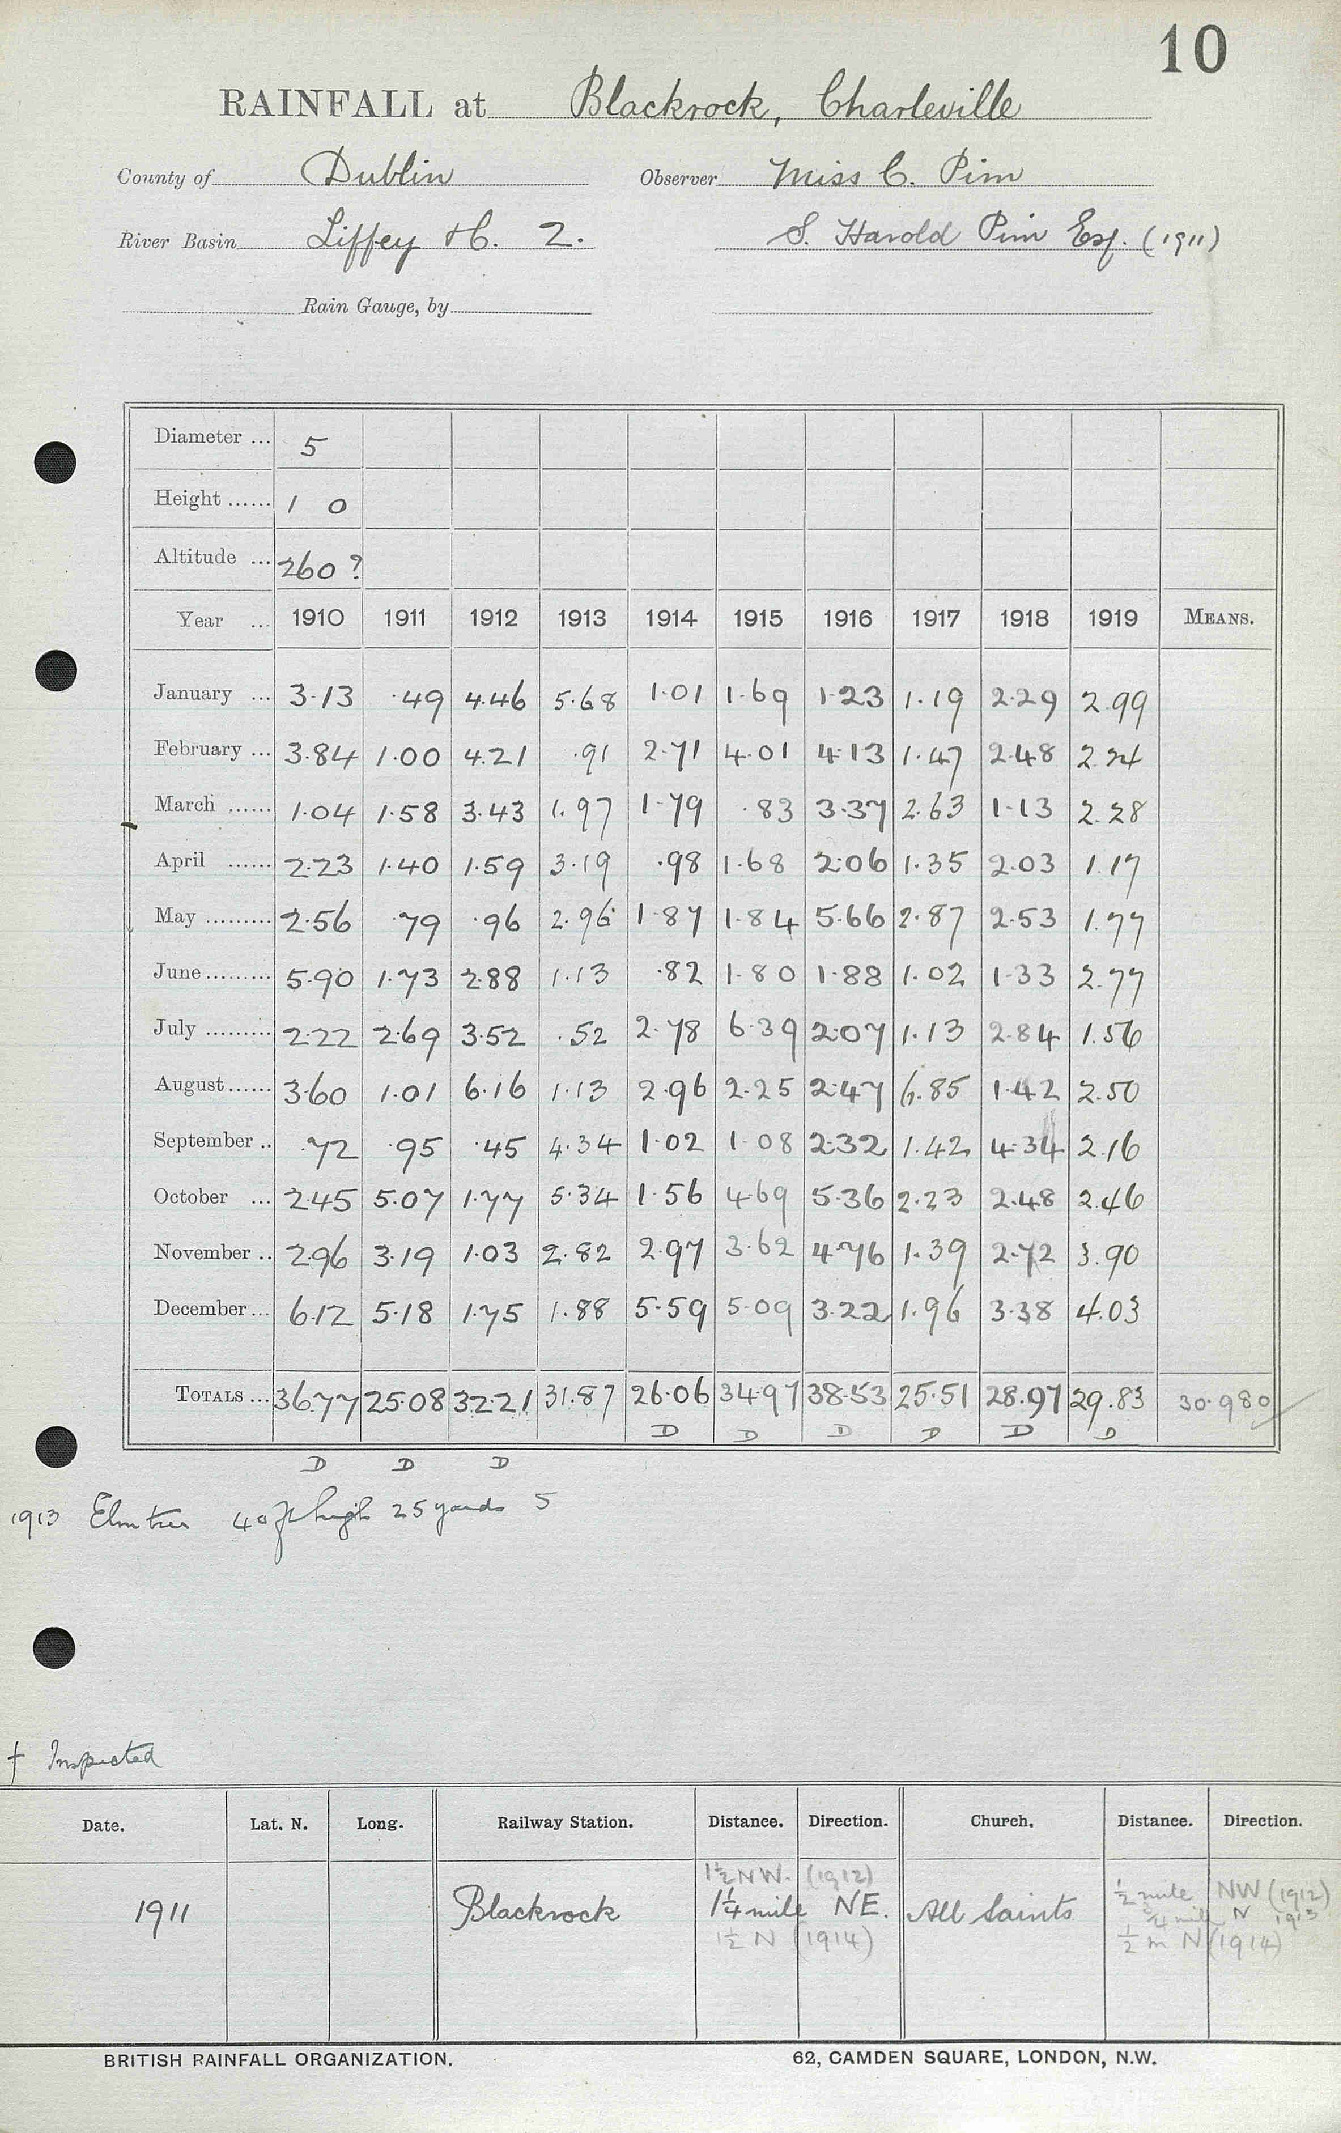 10
RAINFALL at Blackrock, Charleville
County of Dublin Observer Miss C. Pim
River Basin Liffey &C. 2. S. Harold Pim Esq. (1911)
Rain Gauge, by
Diameter ... 5
Height ...... 1 0
Altitude ... 260 ?
Year ... 1910 1911 1912 1913 1914 1915 1916 1917 1918 1919 MEANS.
January ... 3.13 .49 4.46 5.68 1.01 1.69 1.23 1.19 2.29 2.99
February ... 3.84 1.00 4.21 .91 2.71 4.01 4.13 1.47 2.48 2.24
March ...... 1.04 1.58 3.43 1.97 1.79 .83 3.37 2.63 1.13 2.28
April ...... 2.23 1.40 1.59 3.19 .98 1.68 2.06 1.35 2.03 1.17
May ......... 2.56 .79 .96 2.96 1.87 1.84 5.66 2.87 2.53 1.77
June ......... 5.90 1.73 2.88 1.13 .82 1.80 1.88 1.02 1.33 2.77
July ......... 2.22 2.69 3.52 .52 2.78 6.39 2.07 1.13 2.84 1.56
August ...... 3.60 1.01 6.16 1.13 2.96 2.25 2.47 6.85 1.42 2.50
September .. .72 .95 .45 4.34 1.02 1.08 2.32 1.42 4.34 2.16
October ... 2.45 5.07 1.77 5.34 1.56 4.69 5.36 2.23 2.48 2.46
November .. 2.96 3.19 1.03 2.82 2.97 3.62 4.76 1.39 2.72 3.90
December ... 6.12 5.18 1.75 1.88 5.59 5.09 3.22 1.96 3.38 4.03
TOTALS ... 36.77 25.08 32.21 31.87 26.06 34.97 38.53 25.51 28.97 29.83 30.980
D D D D D D
D D D
1913 Elm tree 40 ft high 25 yards S
† Inspected
Date. Lat. N. Long. Railway Station. Distance. Direction. Church. Distance. Direction.
1½ NW. (1912) ½ mile NW (1912)
1911 Blackrock 1¼ mile NE. All Saints ¾ mile N 1913
1½ N (1914) ½ m N (1914)
BRITISH RAINFALL ORGANIZATION. 62, CAMDEN SQUARE, LONDON, N.W.